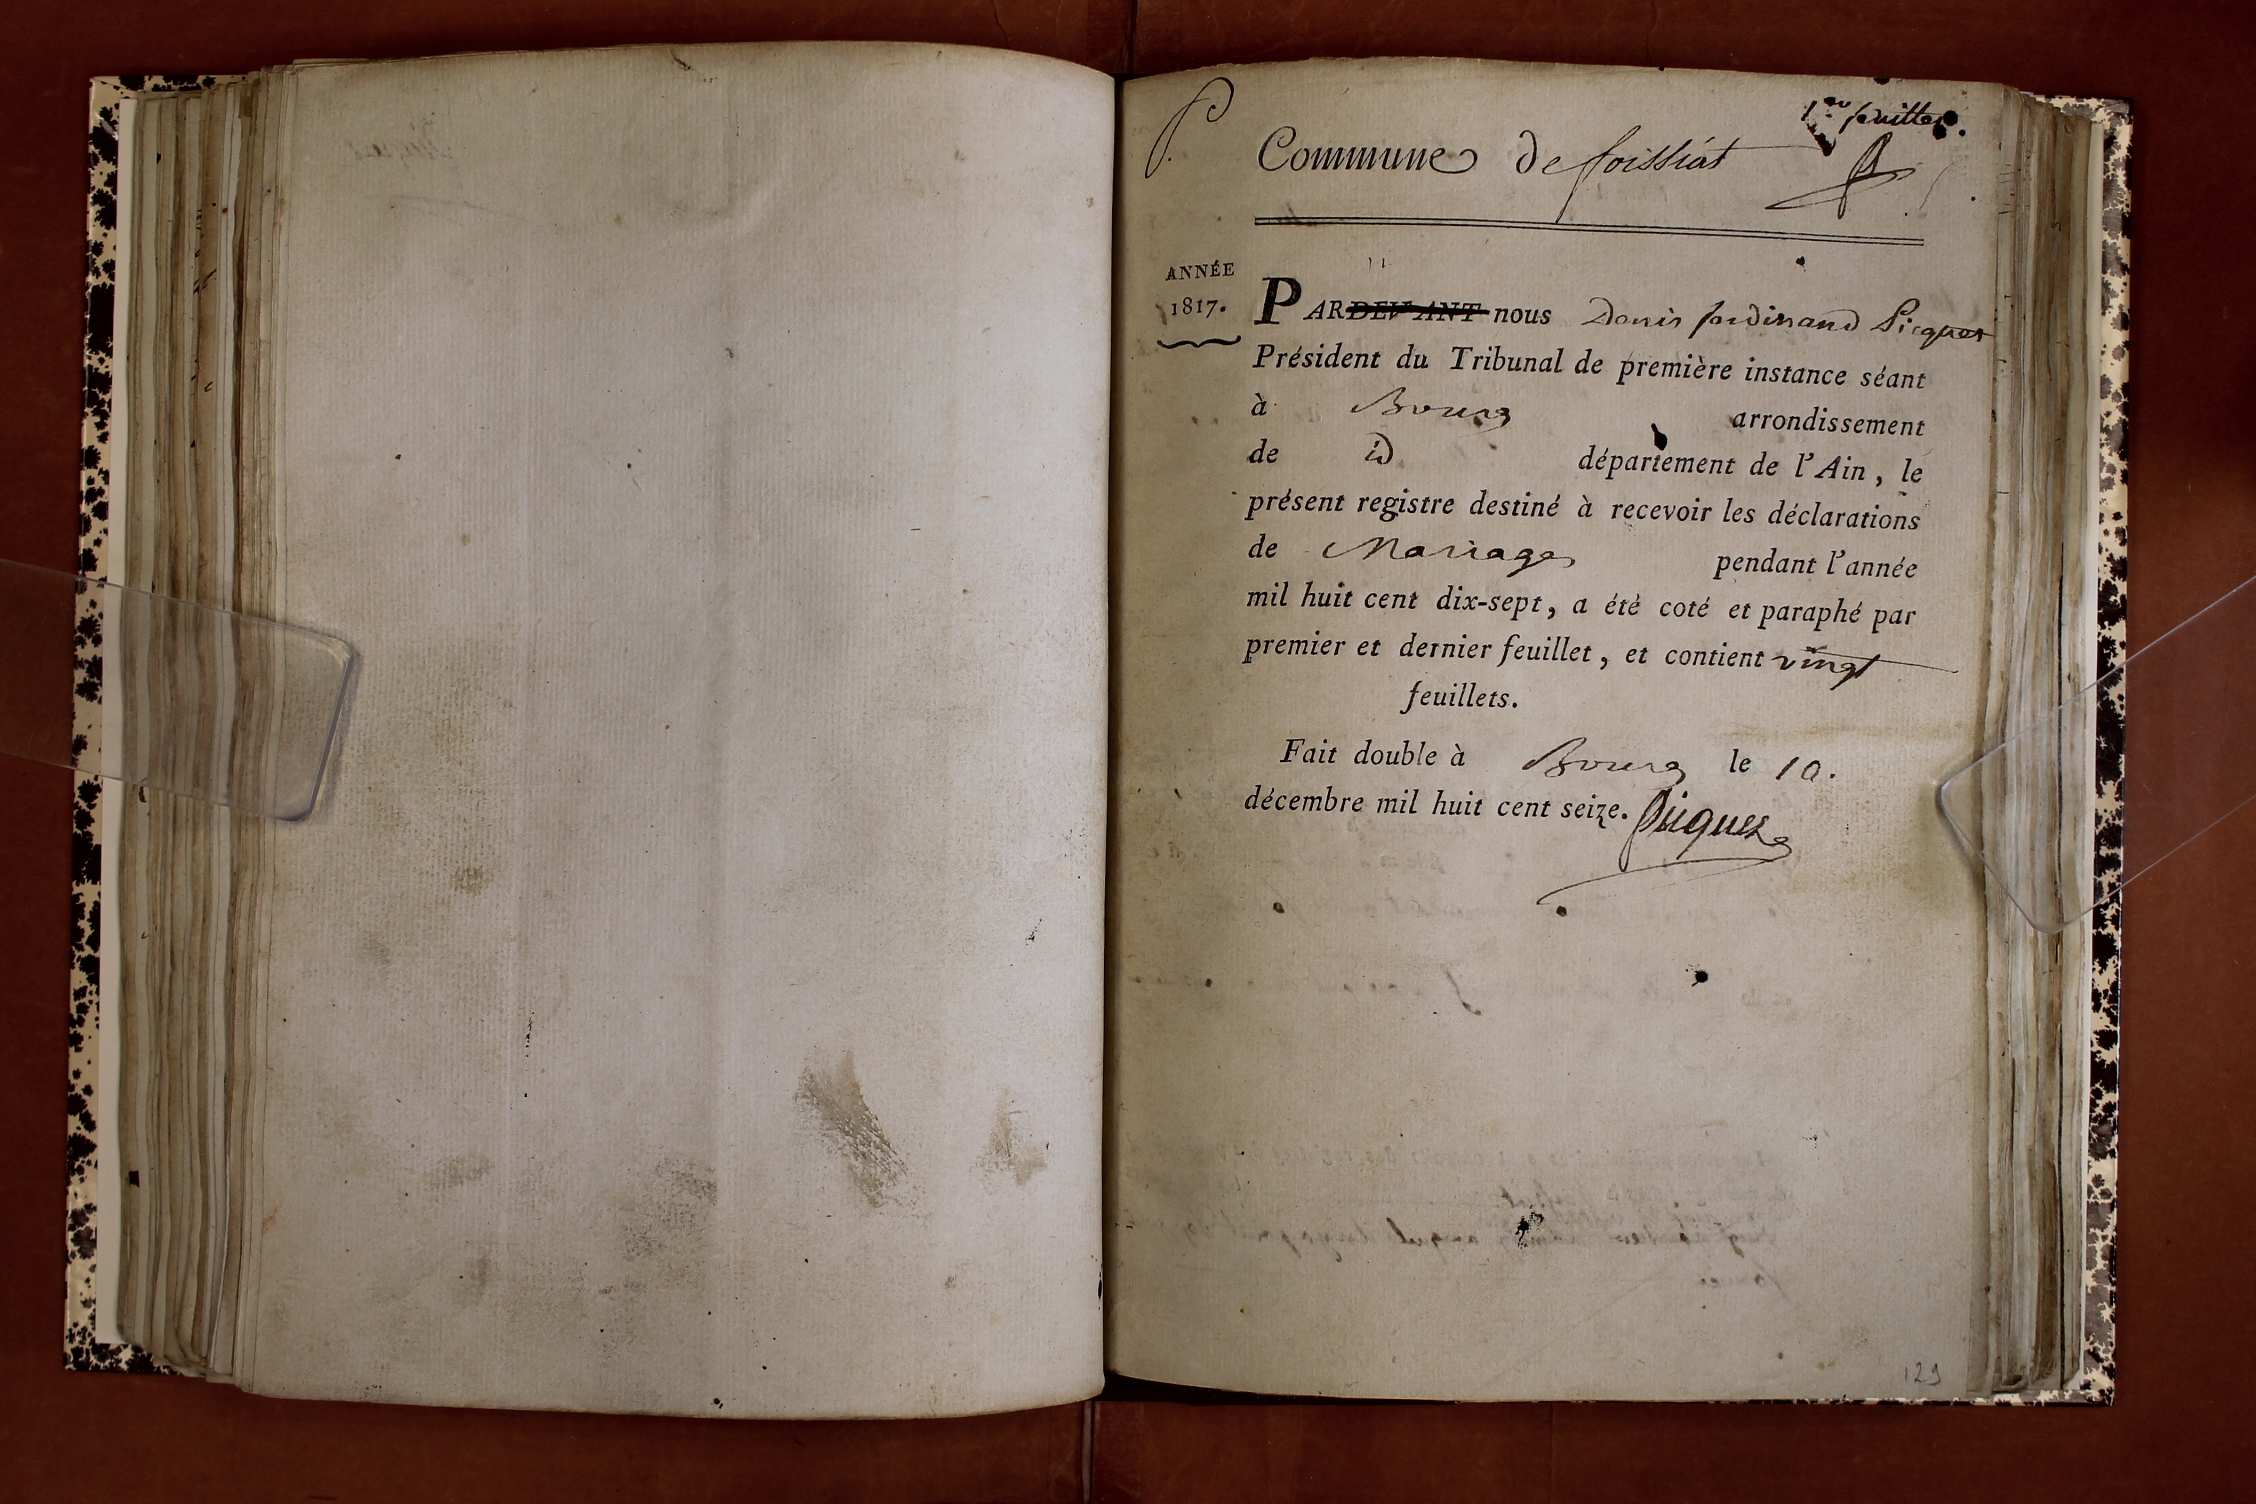 1er feuillet.
Commune de foissiat
ANNÉE
1817.
PARDEVANT nous Denis ferdinand Picquet
Président du Tribunal de première instance séant
à Bourg arrondissement
de id département de l'Ain, le
présent registre destiné à recevoir les déclarations
de Mariages pendant l'année
mil huit cent dix-sept, a été coté et paraphé par
premier et dernier feuillet, et contient vingt
feuillets.
Fait double à Bourg le 10.
décembre mil huit cent seize. Picquet
129